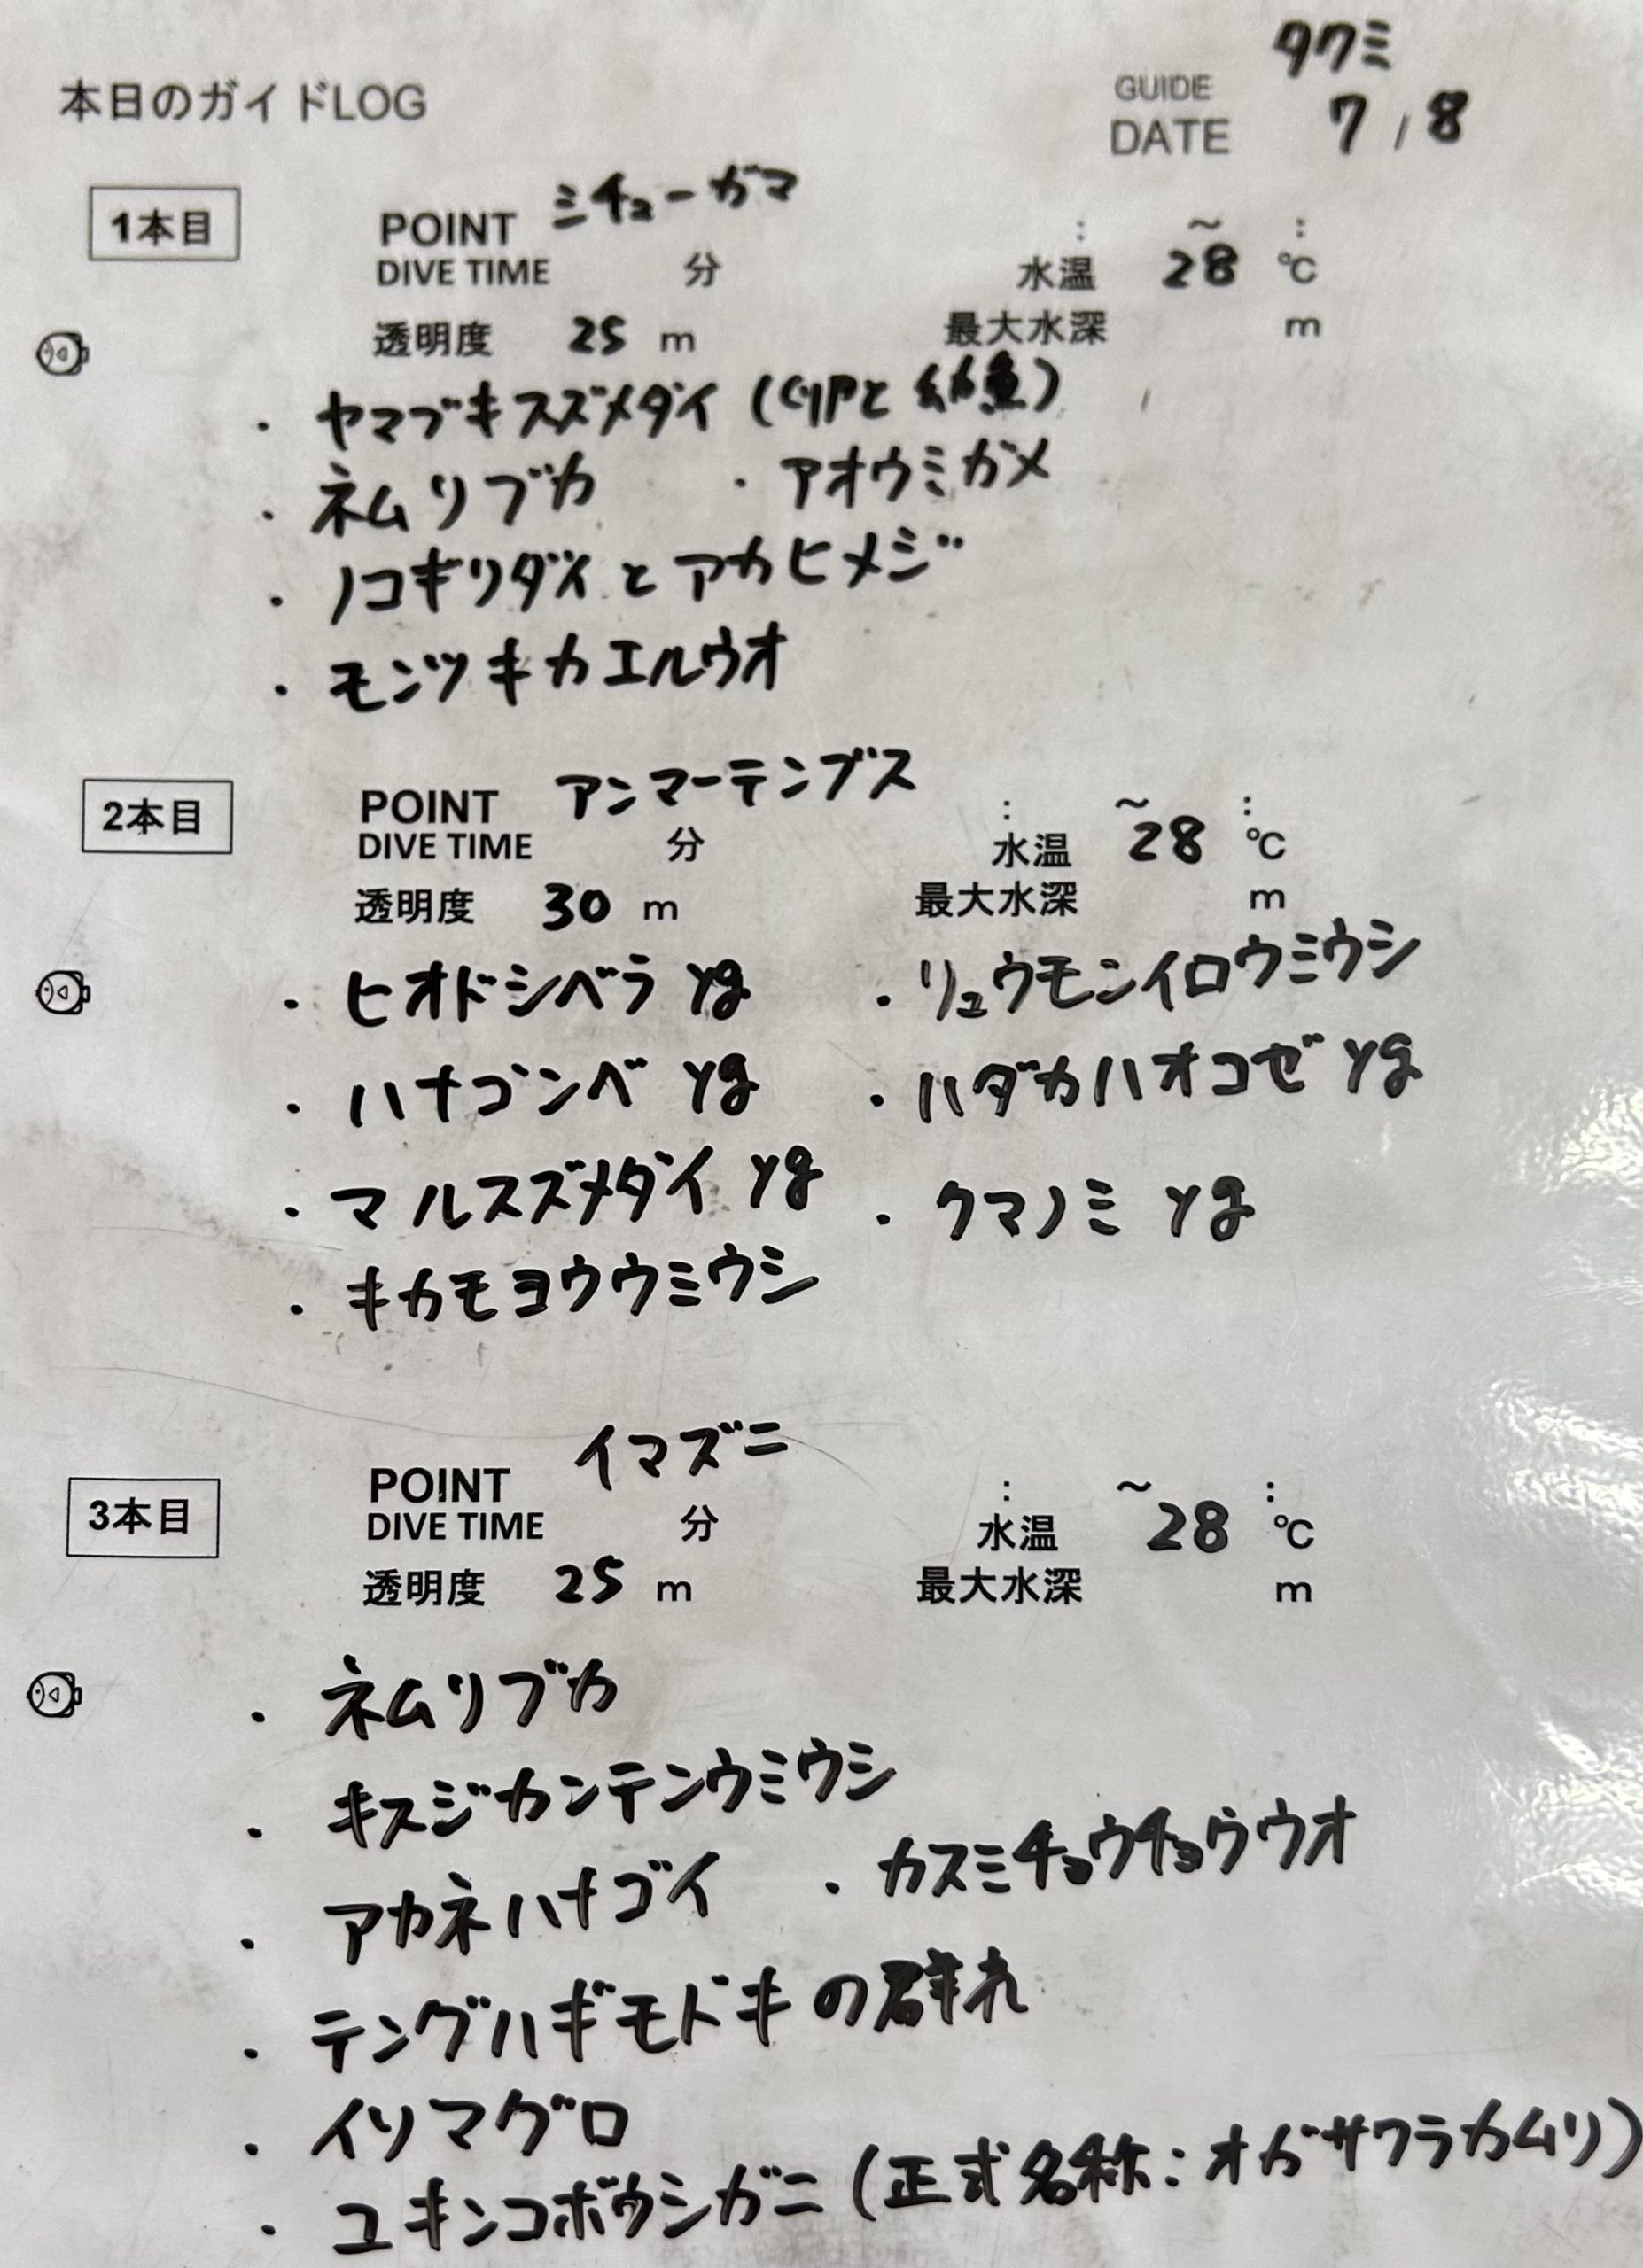 タクミ
本日のガイドLOG GUIDE
DATE 7/8
1本目 POINT ミチューガマ : ～ :
DIVE TIME 分 水温 28 ℃
透明度 25 m 最大水深 m
・ヤマブキスズメダイ(卵と幼魚)
・ネムリブカ ・アオウミガメ
・ノコギリダイとアカヒメジ
・モンツキカエルウオ
2本目 POINT アンマーテンブス : ～ :
DIVE TIME 分 水温 28 ℃
透明度 30 m 最大水深 m
・ヒオドシベラ yg ・リュウモンイロウミウシ
・ハナゴンベ yg ・ハダカハオコゼ yg
・マルスズメダイ yg ・クマノミ yg
・キカモヨウウミウシ
3本目 POINT イマズニ : ～ :
DIVE TIME 分 水温 28 ℃
透明度 25 m 最大水深 m
・ネムリブカ
・キスジカンテンウミウシ
・アカネハナゴイ ・カスミチョウチョウウオ
・テングハギモドキの群れ
・イソマグロ
・ユキンコボウシガニ(正式名称:オガサワラカムリ)